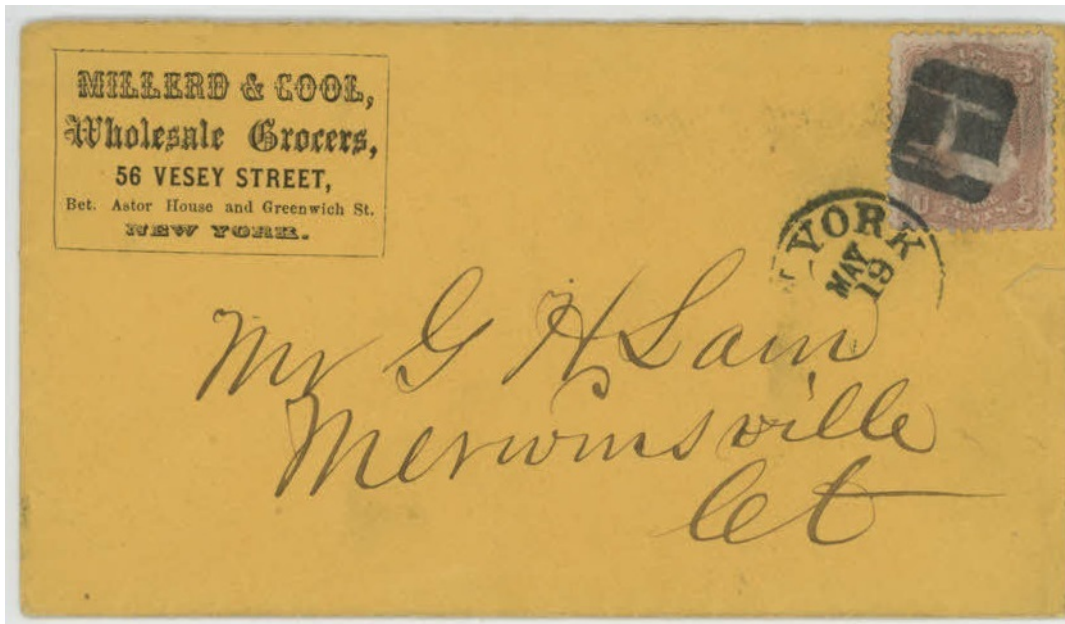 MILLERD & COOL,
Wholesale Grocers,
56 VESEY STREET,
Bet. Astor House and Greenwich St.
NEW YORK.
YORK
MAY
19
Mr G H Lain
Merwinsville
Ct
3
U S
CENTS